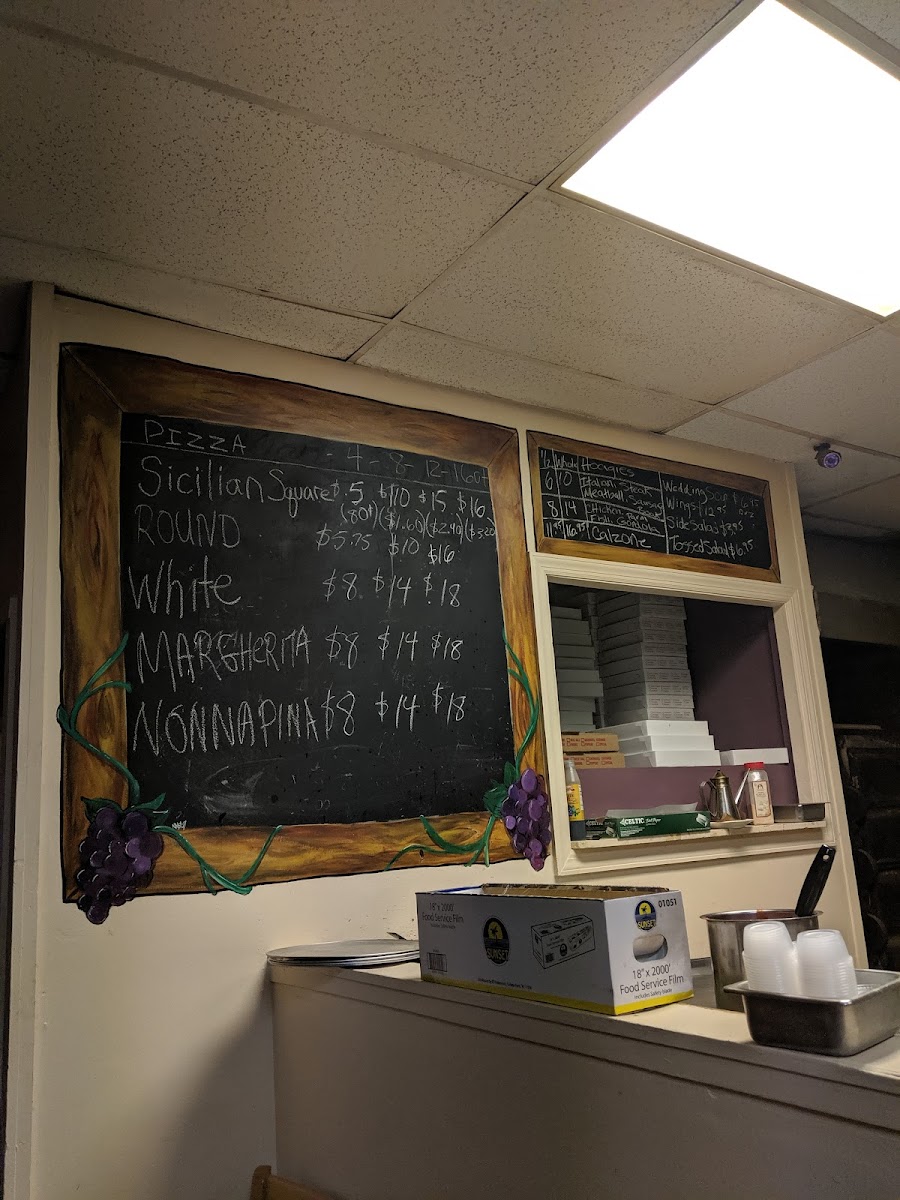 PIZZA - 4 - 8 - 12 - 16cut
Sicilian Square $.5 $10 $15 $16
(80¢) ($1.60) ($2.40) ($3.20
ROUND $5.75 $10 $16
White $8 $14 $18
MARGHERITA $8 $14 $18
NONNAPINA $8 $14 $18
1/2 Whole Hoagies
6 10 Italian, Steak
Meatball, Sausage
8 14 Chicken
11.95 16.95 Calzone
Wedding Soup $6.95
Wings $12.95 doz
Side Salad $3.95
Tossed Salad $6.95
CELTIC
18" x 2000'
Food Service Film
SUNSET
01051
18" x 2000'
Food Service Film
includes Safety blade